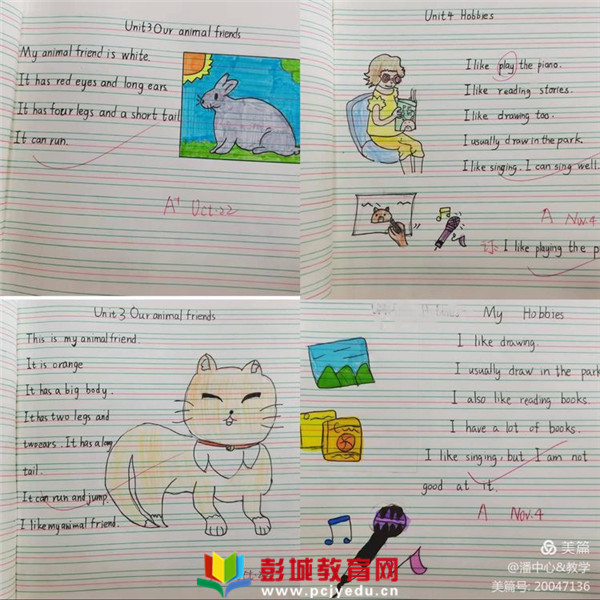 Unit3 Our animal friends
My animal friend is white.
It has red eyes and long ears
It has four legs and a short tail
It can run.
A+ Oct.22
Unit4 Hobbies
I like play the piano.
I like reading stories.
I like drawing too.
I usually draw in the park.
I like singing. I can sing well.
A Nov.4
I like playing the p
Unit 3 Our animal friends
This is my animal friend.
It is orange
It has a big body.
It has two legs and
two ears. It has a long
tail.
It can run and jump.
I like my animal friend.
My Hobbies
I like drawing.
I usually draw in the park
I also like reading books.
I have a lot of books.
I like singing, but I am not
good at it.
A Nov.4
美篇
@潘中心&教学
美篇号: 20047136
彭城教育网
www.pcjyedu.cn